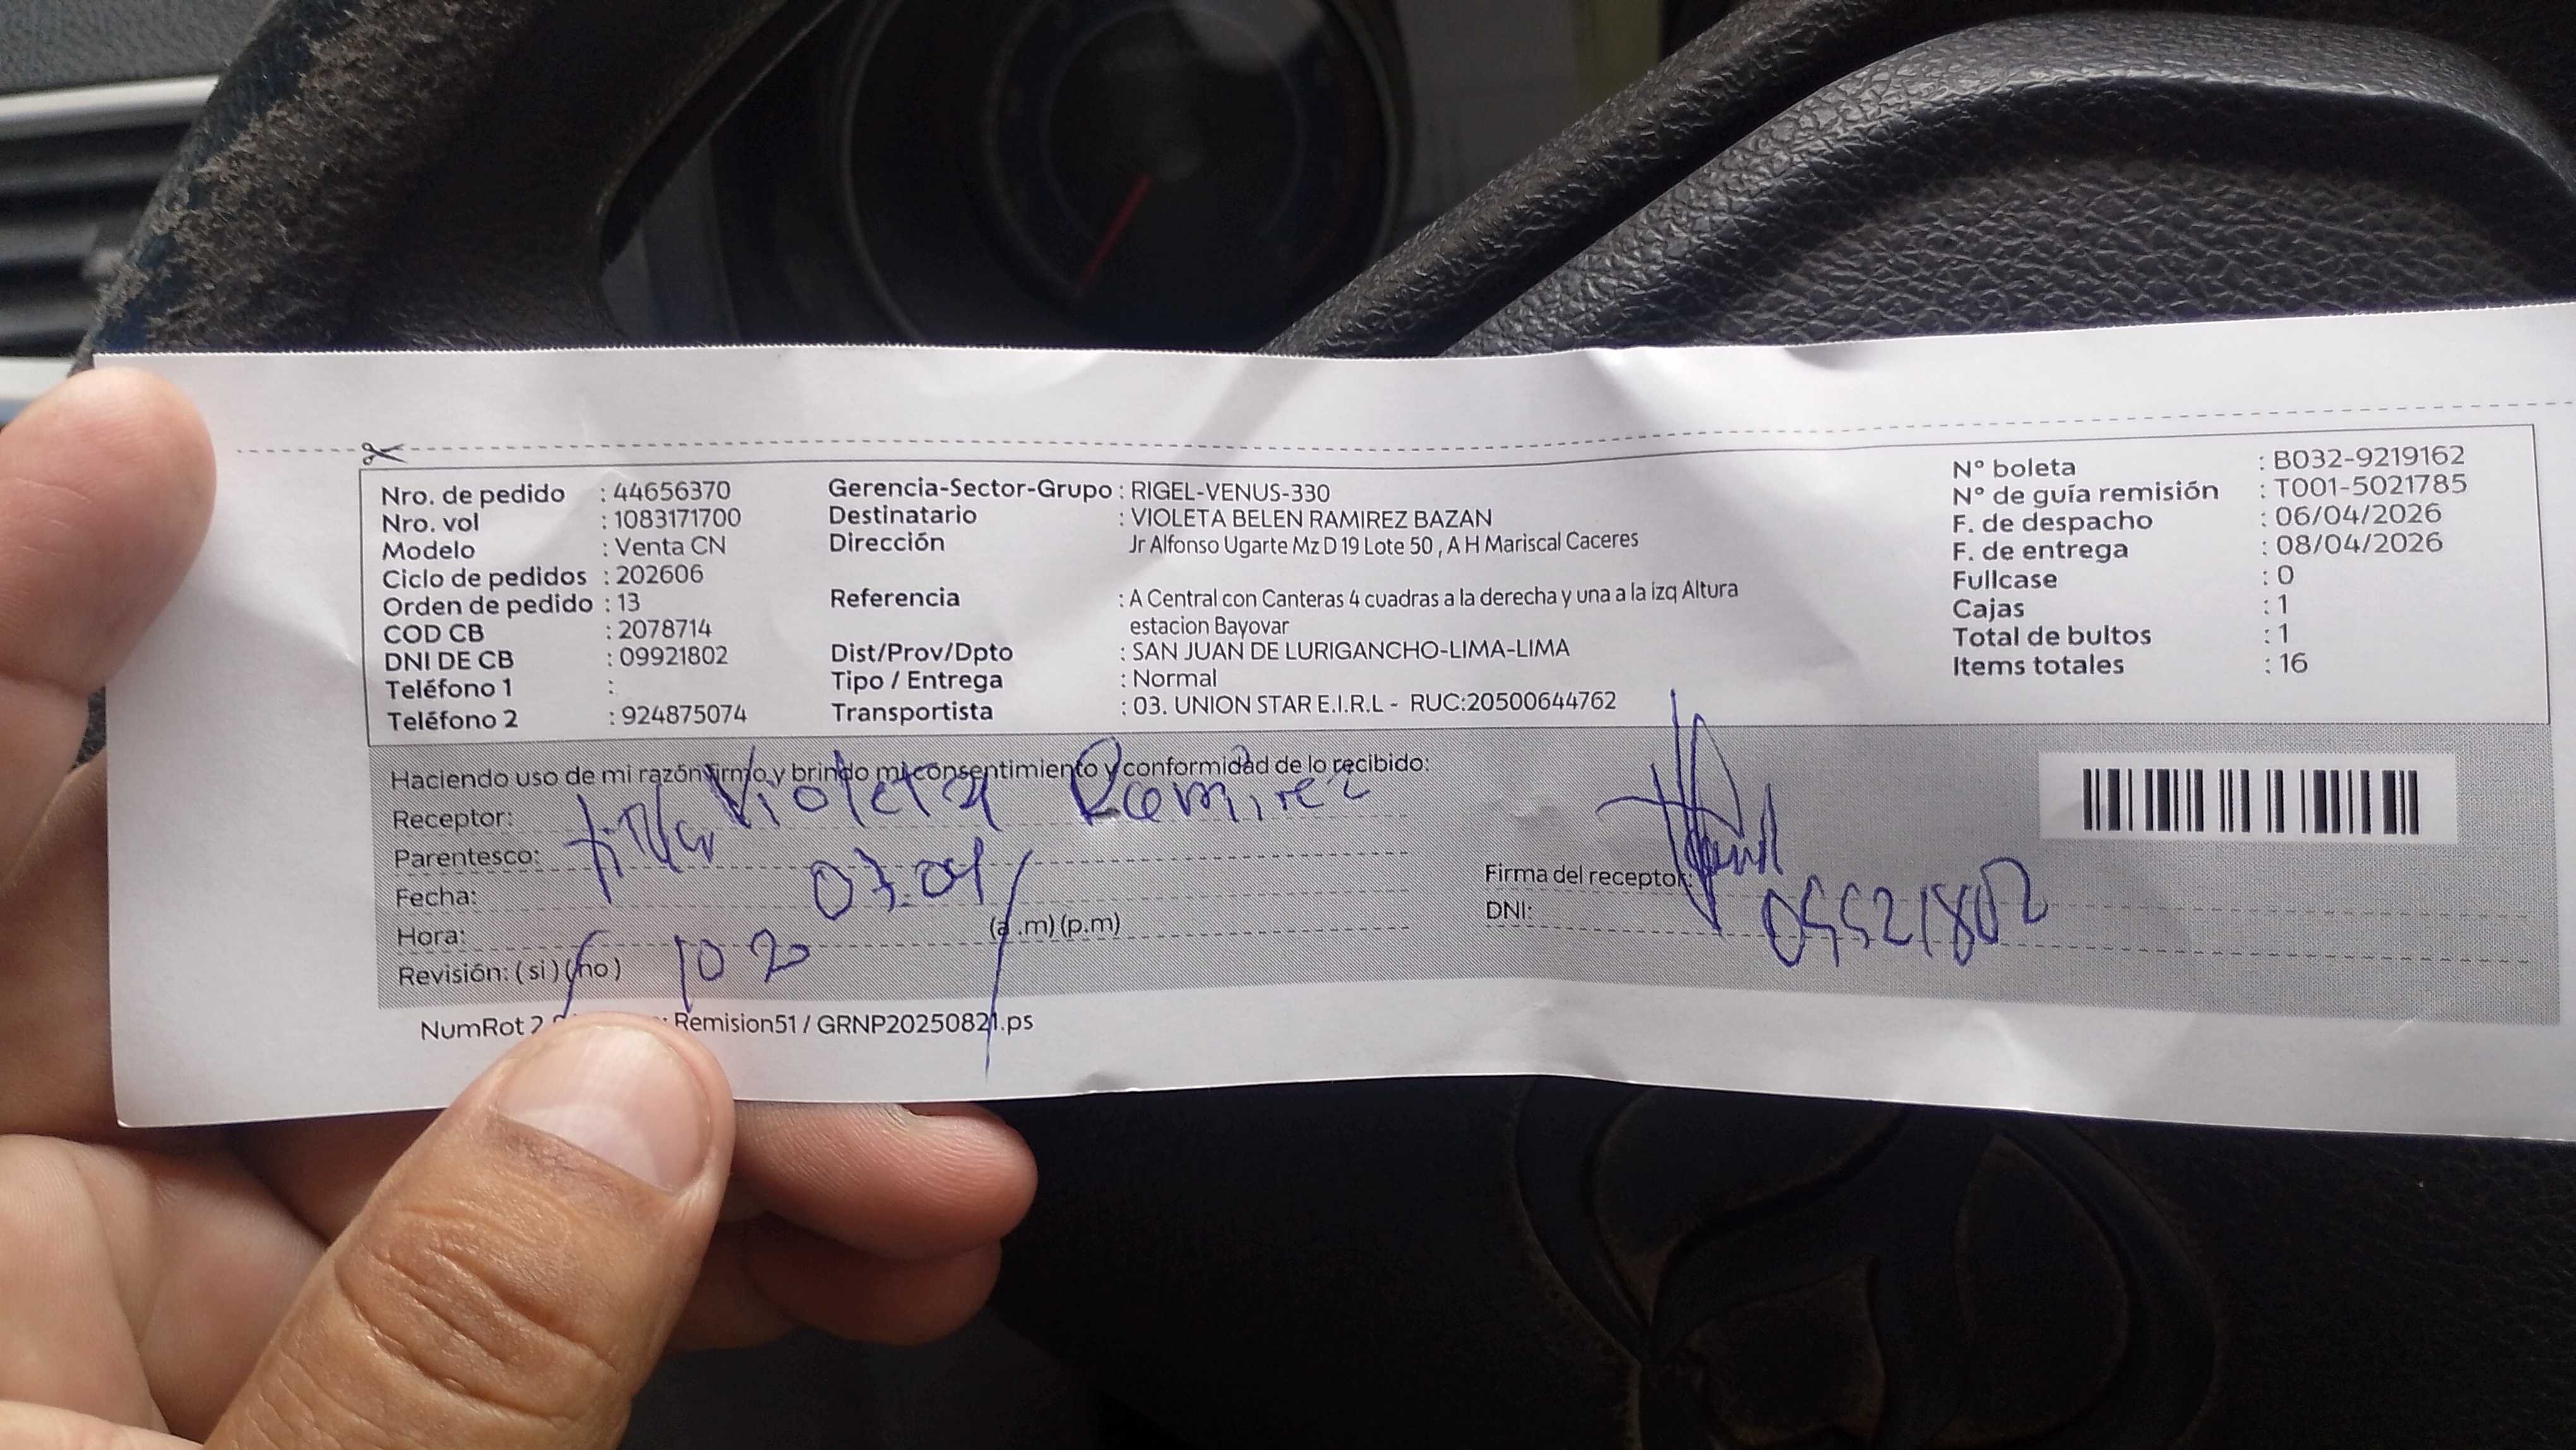 Nro. de pedido : 44656370
Nro. vol : 1083171700
Modelo : Venta CN
Ciclo de pedidos : 202606
Orden de pedido : 13
COD CB : 2078714
DNI DE CB : 09921802
Teléfono 1 :
Teléfono 2 : 924875074
Gerencia-Sector-Grupo : RIGEL-VENUS-330
Destinatario : VIOLETA BELEN RAMIREZ BAZAN
Dirección Jr Alfonso Ugarte Mz D 19 Lote 50 , A H Mariscal Caceres
Referencia : A Central con Canteras 4 cuadras a la derecha y una a la izq Altura
estacion Bayovar
Dist/Prov/Dpto : SAN JUAN DE LURIGANCHO-LIMA-LIMA
Tipo / Entrega : Normal
Transportista : 03. UNION STAR E.I.R.L - RUC:20500644762
N° boleta : B032-9219162
N° de guía remisión : T001-5021785
F. de despacho : 06/04/2026
F. de entrega : 08/04/2026
Fullcase : 0
Cajas : 1
Total de bultos : 1
Items totales : 16
Haciendo uso de mi razón firmo y brindo mi consentimiento y conformidad de lo recibido:
Receptor: Violeta Ramirez
Parentesco:
Fecha: 07.04
Hora: 10 20 (a .m) (p.m)
Revisión: ( si ) (no )
Firma del receptor:
DNI: 09921802
NumRot 2 Remision51 / GRNP20250821.ps